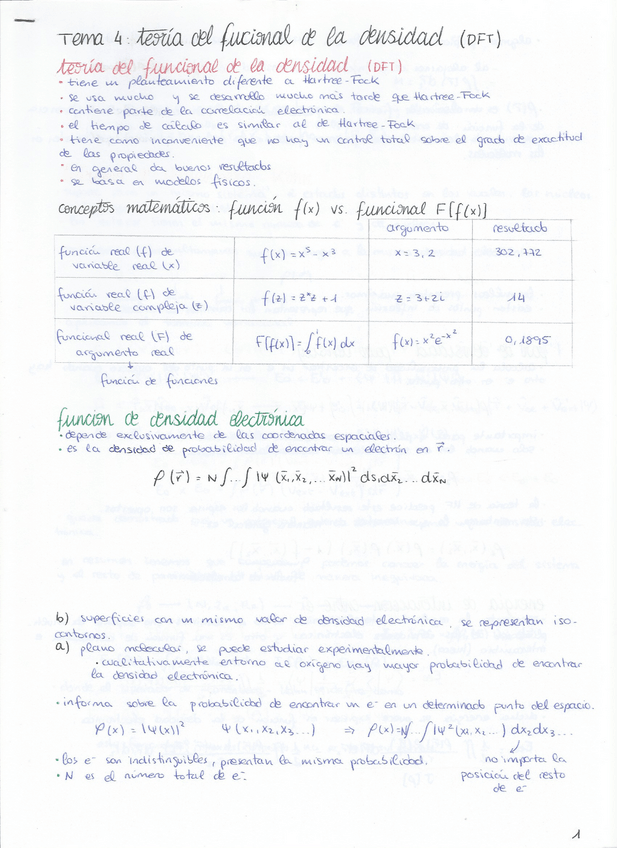 Tema 4: teoría del fucional de la densidad (DFT)
teoría del funcional de la densidad (DFT)
· tiene un planteamiento diferente a Hartree-Fock
· se usa mucho y se desarrolló mucho más tarde que Hartree-Fock
· contiene parte de la correlación electrónica.
· el tiempo de cálculo es similar al de Hartree-Fock
· tiene como inconveniente que no hay un control total sobre el grado de exactitud
de las propiedades.
· en general da buenos resultados
· se basa en modelos físicos.
conceptos matemáticos: función f(x) vs. funcional F[f(x)]
argumento resultado
función real (f) de
variable real (x)
f(x) = x⁵ - x³ x = 3,2 302,772
función real (f) de
variable compleja (z)
f(z) = z*z + 1 z = 3+2i 14
funcional real (F) de
argumento real
F[f(x)] = ∫₀¹ f(x) dx f(x) = x²e^-x² 0,1895
función de funciones
funcion de densidad electrónica
· depende exclusivamente de las coordenadas espaciales.
· es la densidad de probabilidad de encontrar un electrón en r⃗.
ρ(r⃗) = N ∫...∫ |Ψ (x̄₁, x̄₂, ... x̄N)|² ds₁dx̄₂... dx̄N
b) superficies con un mismo valor de densidad electrónica, se representan iso-
contornos.
a) plano molecular, se puede estudiar experimentalmente.
· cualitativamente entorno al oxígeno hay mayor probabilidad de encontrar
la densidad electrónica.
· informa sobre la probabilidad de encontrar un e⁻ en un determinado punto del espacio.
ρ(x) = |Ψ(x)|² Ψ(x₁, x₂, x₃...) ⇒ ρ(x)=N∫...∫|Ψ²(x₁, x₂...) dx₂dx₃...
· los e⁻ son indistinguibles, presentan la misma probabilidad.
· N es el número total de e⁻.
no importa la
posición del resto
de e⁻
1